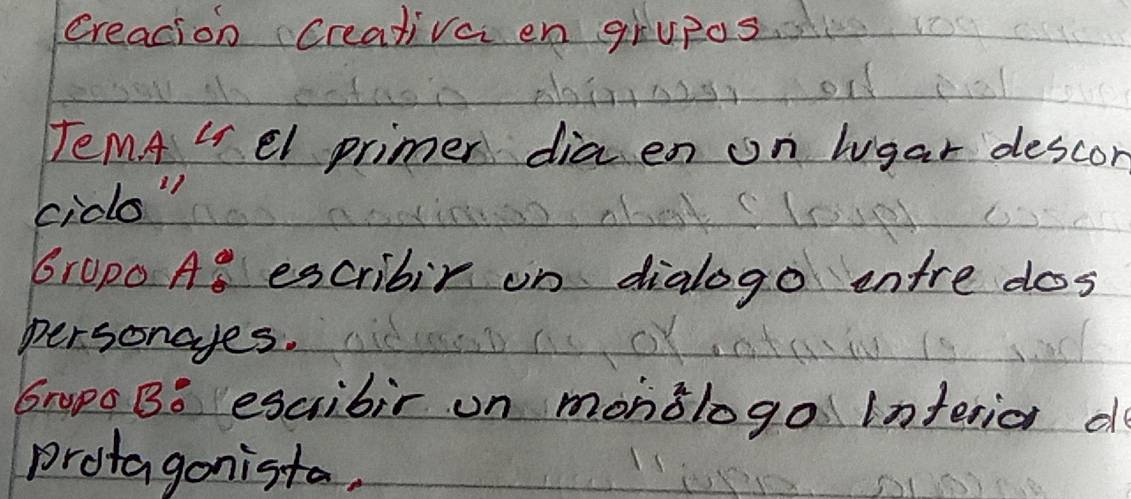 creación creativa en grupos
TEMA "el primer dia en un lugar descon
cido"
Grupo A: escribir un dialogo entre dos
personajes.
Grupo B: escribir un monólogo interior de
protagonista.